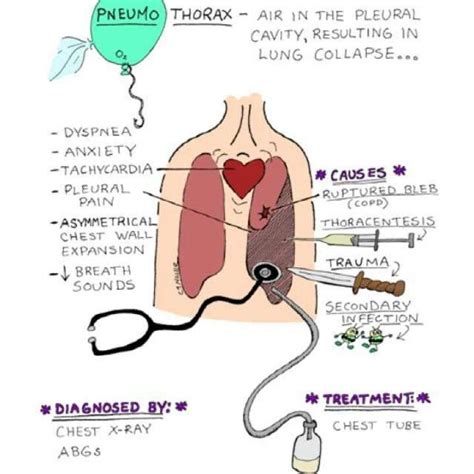 PNEUMO THORAX - AIR IN THE PLEURAL
CAVITY, RESULTING IN
LUNG COLLAPSE...
O₂
- DYSPNEA
- ANXIETY
- TACHYCARDIA
- PLEURAL
PAIN
- ASYMMETRICAL
CHEST WALL
EXPANSION
- ↓ BREATH
SOUNDS
* CAUSES *
RUPTURED BLEB
(COPD)
THORACENTESIS
TRAUMA
SECONDARY
INFECTION
* DIAGNOSED BY: *
CHEST X-RAY
ABGs
* TREATMENT: *
CHEST TUBE